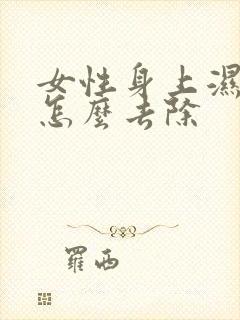 女性身上濕
怎麼去除
羅西